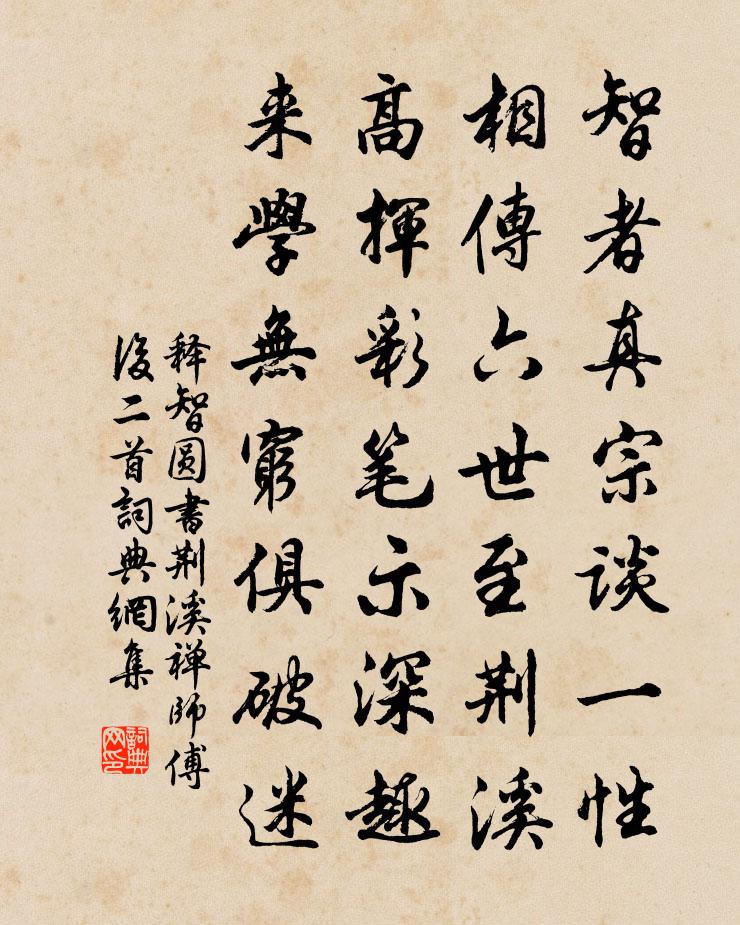 智者真宗谈一性
相傳六世至荆溪
高揮彩笔示深趣
来學無窮俱破迷
释智圆書荆溪禅師傅
後二首詞典網集
詞典网印